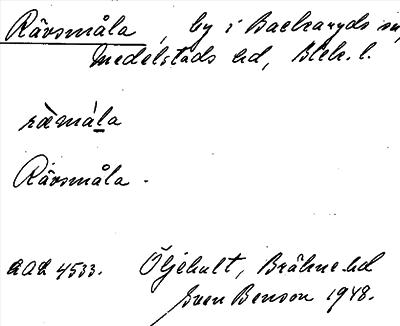 Rävsmåla, by i Backaryds sn,
Medelstads hd, Blek. l.
rä̀måla
Rävsmåla.
4533. Öljehult, Bräkne hd
Sven Benson 1948.